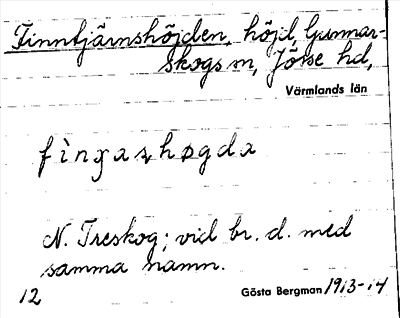 Finntjärnshöjden, höjd, Gunnar-
skogs sn, Jösse hd,
Värmlands län
fìnɟaʂhøgda
N. Treskog; vid br. d. med
samma namn.
12 Gösta Bergman 1913-14